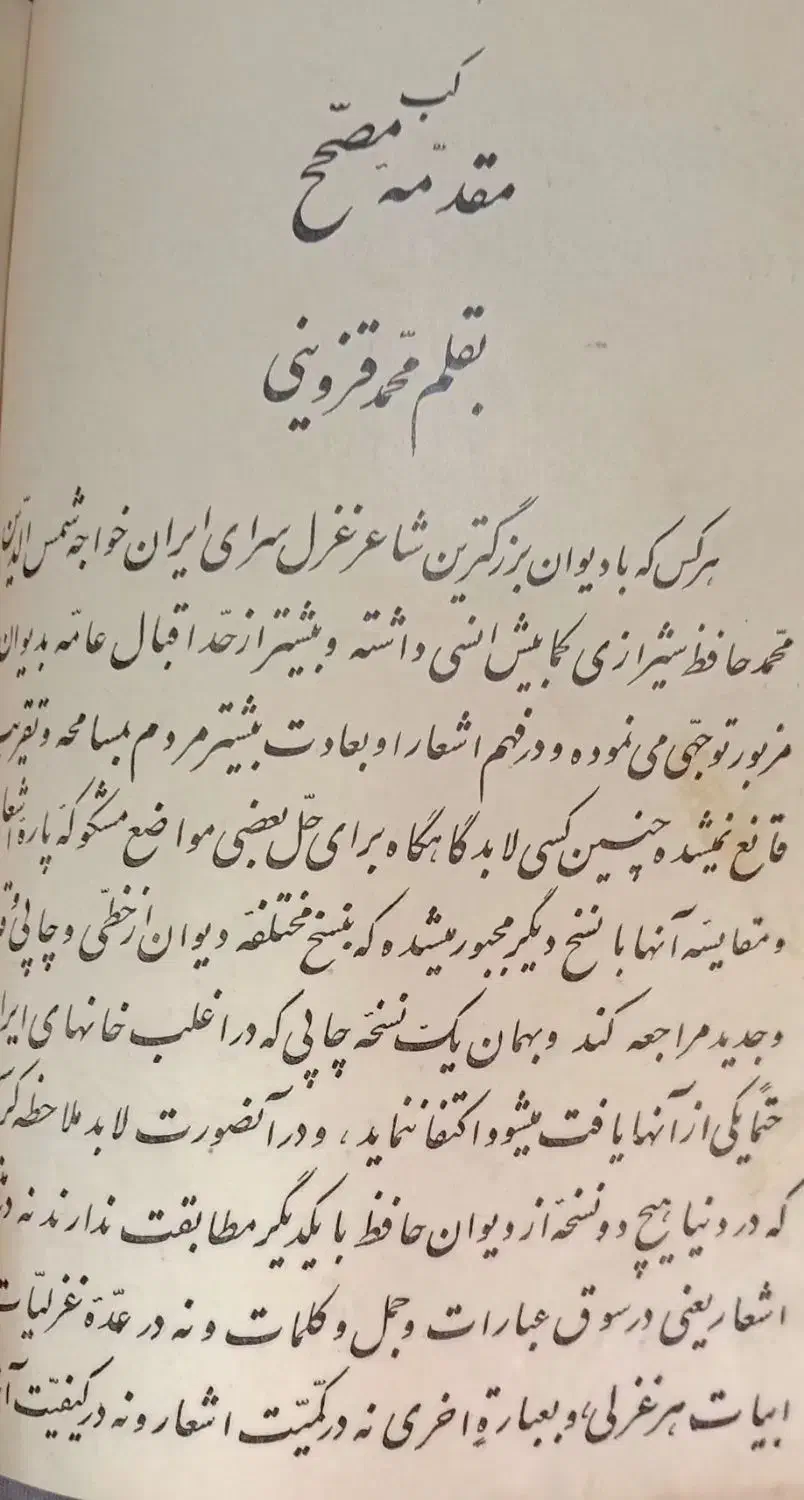 کب
مقدّمهٔ مصحّح
بقلم محمّد قزوینی
هرکس که با دیوان بزرگترین شاعر غزل سرای ایران خواجه شمس الدّین
محمّد حافظ شیرازی کمابیش انسی داشته و بیشتر از حدّ اقبال عامّه بدیوان
مزبور توجّهی می نموده و در فهم اشعار او بعادت بیشتر مردم بمسامحه و تقریب
قانع نمیشده چنین کسی لابد گاهگاه برای حلّ بعضی مواضع مشکوکهٔ پارهٔ اشعار
و مقایسهٔ آنها با نسخ دیگر مجبور میشده که بنسخ مختلفهٔ دیوان از خطّی و چاپی و
و جدید مراجعه کند و بهمان یک نسخهٔ چاپی که در اغلب خانهای
حتماً یکی از آنها یافت میشود اکتفا ننماید، و در آنصورت لابد ملاحظه
که در دنیا هیچ دو نسخهٔ از دیوان حافظ با یکدیگر مطابقت ندارند نه
اشعار یعنی در سوق عبارات و جمل و کلمات و نه در عدّهٔ غزلیّات
ابیات هر غزلی، و بعبارةٍ اخری نه در کمّیّت اشعار و نه در کیفیّت